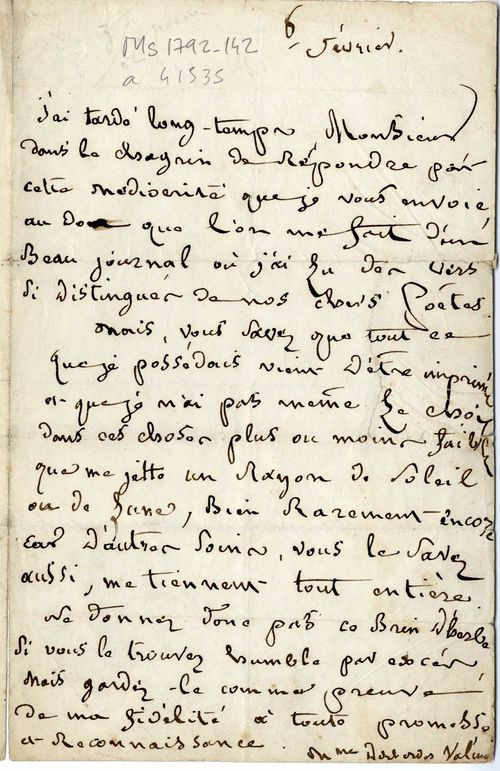 6 février.
Ms 1792-142
a 41535
j'ai tardé long-temps Monsieur
dans le chagrin de Répondre par
cette médiocrité que je vous envoie
au don que l'on me fait d'un
Beau journal où j'ai lu des vers
si distingués de nos chers Poètes.
mais, vous savez que tout ce
que je possédais vient d'être imprimé
et que je n'ai pas même le choix
dans ces choses plus ou moins faibles
que me jette un Rayon de Soleil
ou de Lune, Bien Rarement encore
car d'autres soins, vous le savez
aussi, me tiennent tout entière.
Ne donnez donc pas ce Brin d'herbe
si vous le trouvez humble par excès
mais gardez-le comme preuve
de ma fidélité à toute promesse
et Reconnaissance.
Mme Desbordes Valmore